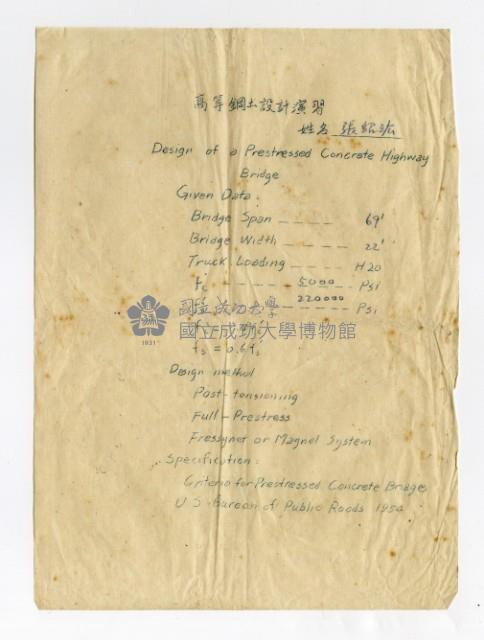 高等鋼土設計演習
姓名 張紹浤
Design of a Prestressed Concrete Highway
Bridge
Given Data:
Bridge Span ---- 69'
Bridge Width ---- 22'
Truck Loading ---- H20
5000 Psi
220000 Psi
國立成功大學
國立成功大學博物館
1931
Design method
Post-tensioning
Full-Prestress
Fressynet or Magnel System
Specification:
Criteria for Prestressed Concrete Bridges
U.S. Bureau of Public Roads 1954